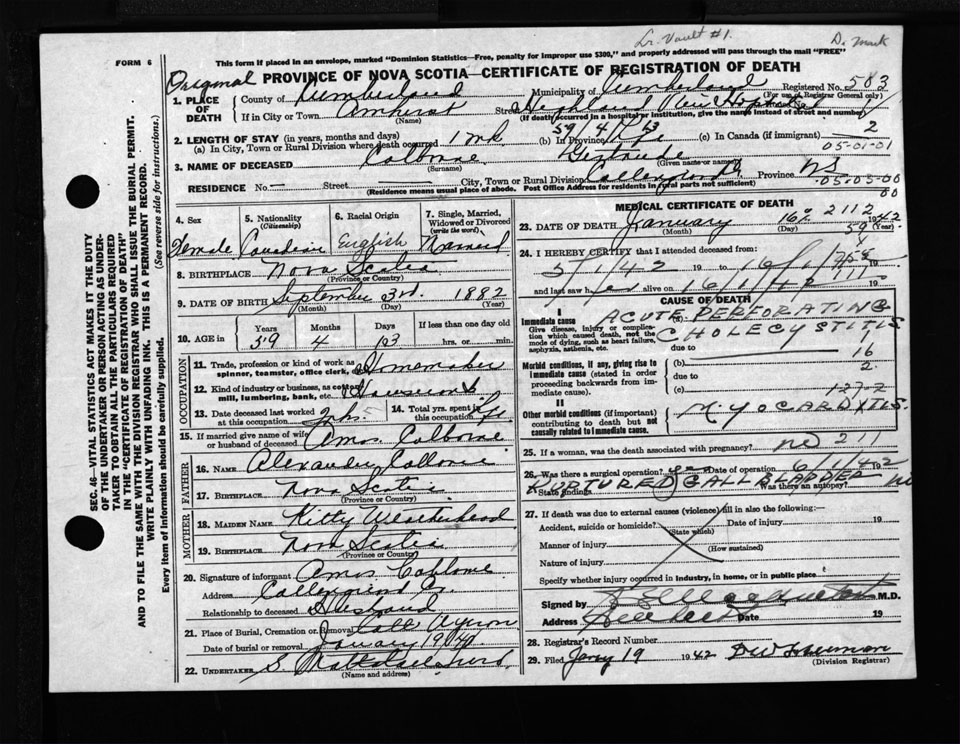 Lr. Vault #1.
D. Mack
This form if placed in an envelope, marked "Dominion Statistics—Free, penalty for improper use $300," and properly addressed will pass through the mail "FREE"
FORM 6
Original
PROVINCE OF NOVA SCOTIA—CERTIFICATE OF REGISTRATION OF DEATH
Registered No. 583
(For use of Registrar General only)
1. PLACE OF DEATH
County of Cumberland Municipality of Cumberland
If in City or Town Amherst Street Highland View Hospital
(Name) (If death occurred in a hospital or institution, give the name instead of street and number)
2. LENGTH OF STAY (in years, months and days)
59/4/13
(a) In City, Town or Rural Division where death occurred (b) In Province (c) In Canada (if immigrant) 2
05-01-01
3. NAME OF DECEASED Colborne Gertrude
(Surname) (Given name or names)
RESIDENCE No. — Street City, Town or Rural Division Province NS
05-05-00
00
(Residence means usual place of abode. Post Office Address for residents in rural parts not sufficient)
4. Sex
Female
5. Nationality
(Citizenship)
Canadian
6. Racial Origin
English
7. Single, Married, Widowed or Divorced
(write the word)
Married
8. BIRTHPLACE Nova Scotia
(Province or Country)
9. DATE OF BIRTH September 3rd. 1882
(Month) (Day) (Year)
10. AGE in
Years Months Days If less than one day old
59 4 13 hrs. or min.
OCCUPATION
11. Trade, profession or kind of work as spinner, teamster, office clerk, Homemaker
12. Kind of industry or business, as cotton mill, lumbering, bank, etc. Housework
13. Date deceased last worked at this occupation
14. Total yrs. spent in this occupation
15. If married give name of wife or husband of deceased Amos Colborne
FATHER
16. NAME Alexander
17. BIRTHPLACE Nova Scotia
MOTHER
18. MAIDEN NAME Kitty Weatherhead
19. BIRTHPLACE Nova Scotia
(Province or Country)
20. Signature of informant Amos Colborne
Address
Relationship to deceased Husband
21. Place of Burial, Cremation or Removal
Date of burial or removal January 19
22. UNDERTAKER
(Name and address)
MEDICAL CERTIFICATE OF DEATH
2112
23. DATE OF DEATH January 16 1942
(Month) (Day) (Year)
59
24. I HEREBY CERTIFY that I attended deceased from:
5/1/42 19 to 16/1/ 19
and last saw her alive on 16/1/42 19
CAUSE OF DEATH
I
Immediate cause
Give disease, injury or complication which caused death, not the mode of dying, such as heart failure, asphyxia, asthenia, etc.
(a) ACUTE PERFORATING
CHOLECYSTITIS
due to 16
Morbid conditions, if any, giving rise to immediate cause (stated in order proceeding backwards from immediate cause).
(b) 2.
due to
(c) 127-2
II
Other morbid conditions (if important) contributing to death but not causally related to immediate cause.
MYOCARDITIS.
25. If a woman, was the death associated with pregnancy? no 211
26. Was there a surgical operation? yes Date of operation 6/1/42 19
State findings RUPTURED GALLBLADDER Was there an autopsy? no
27. If death was due to external causes (violence) fill in also the following:—
Accident, suicide or homicide? Date of injury 19
(State which)
Manner of injury
(How sustained)
Nature of injury
Specify whether injury occurred in industry, in home, or in public place
Signed by M.D.
Address Date 19
28. Registrar's Record Number
29. Filed Jany 19 1942
(Division Registrar)
SEC. 46—VITAL STATISTICS ACT MAKES IT THE DUTY OF THE UNDERTAKER OR PERSON ACTING AS UNDERTAKER TO OBTAIN ALL THE PARTICULARS REQUIRED IN THE "CERTIFICATE OF REGISTRATION OF DEATH" AND TO FILE THE SAME WITH THE DIVISION REGISTRAR WHO SHALL ISSUE THE BURIAL PERMIT.
WRITE PLAINLY WITH UNFADING INK. THIS IS A PERMANENT RECORD.
Every item of information should be carefully supplied. (See reverse side for instructions.)